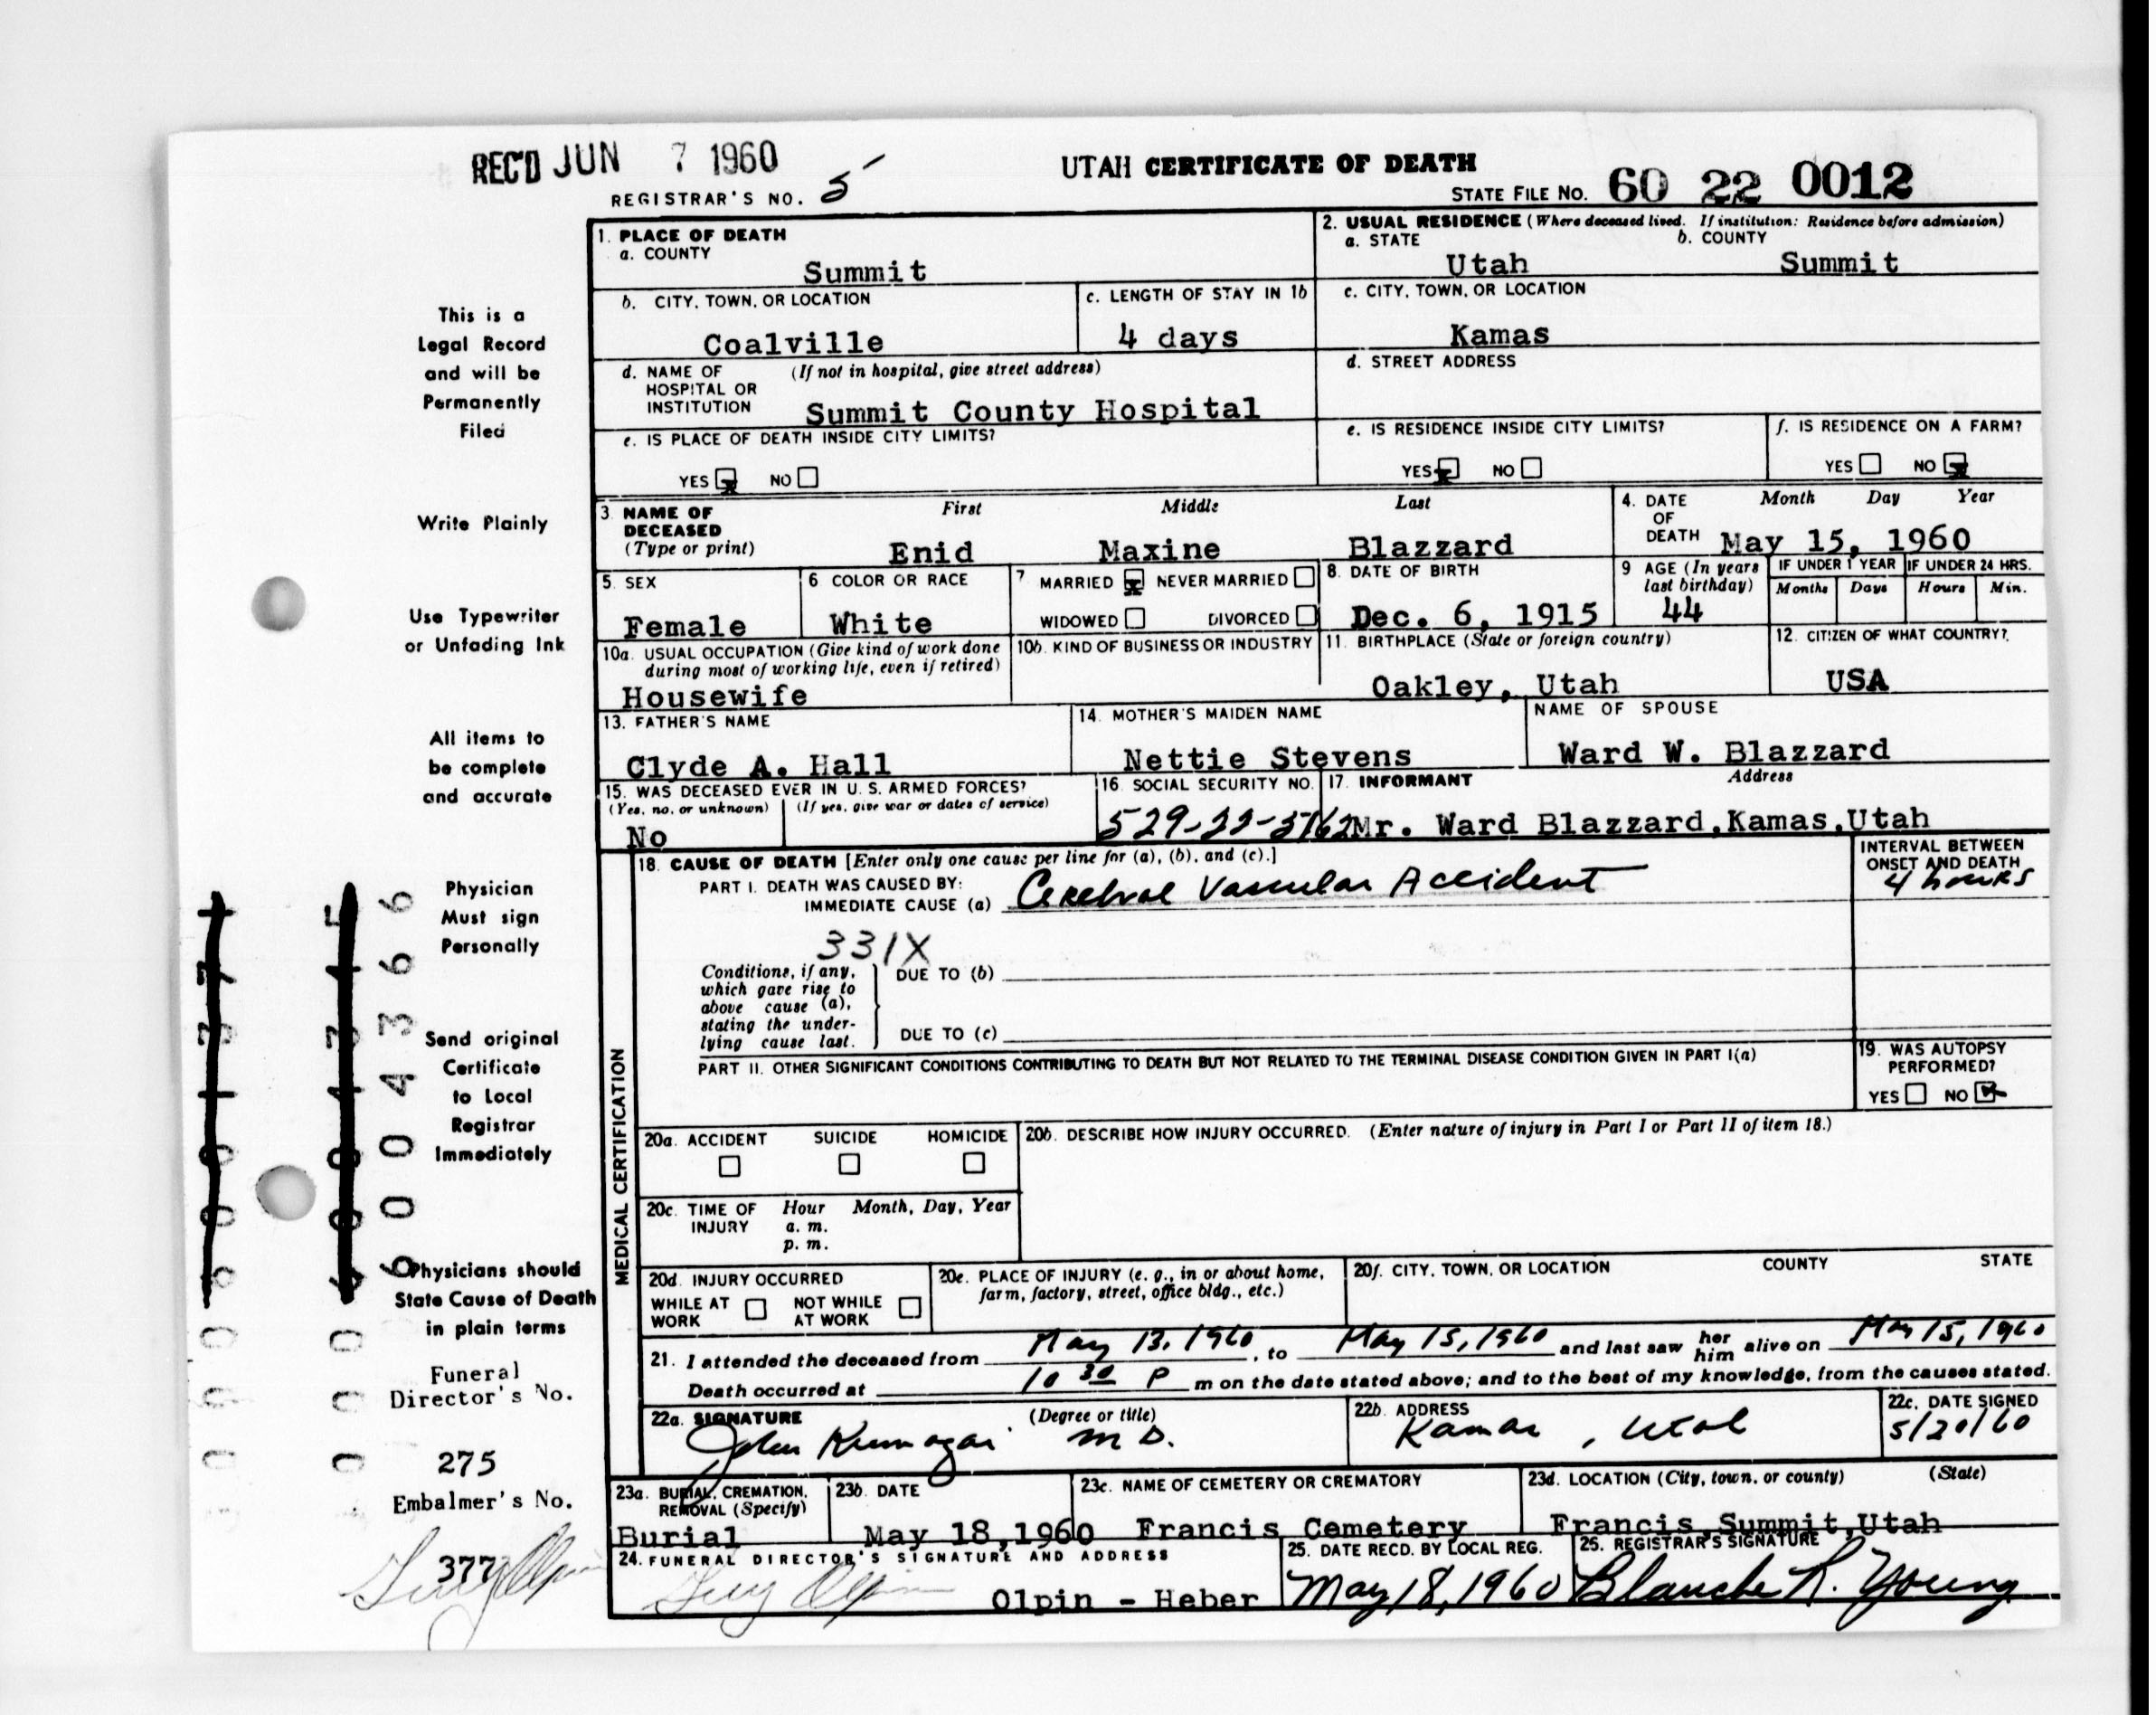 REC'D JUN 7 1960
UTAH CERTIFICATE OF DEATH
REGISTRAR'S NO. 5
STATE FILE NO. 60 22 0012
This is a
Legal Record
and will be
Permanently
Filed
Write Plainly
Use Typewriter
or Unfading Ink
All items to
be complete
and accurate
Physician
Must sign
Personally
Send original
Certificate
to Local
Registrar
Immediately
Physicians should
State Cause of Death
in plain terms
Funeral
Director's No.
275
Embalmer's No.
377
6004366
1. PLACE OF DEATH
a. COUNTY
Summit
2. USUAL RESIDENCE (Where deceased lived. If institution: Residence before admission)
a. STATE b. COUNTY
Utah Summit
b. CITY, TOWN, OR LOCATION
Coalville
c. LENGTH OF STAY IN 1b
4 days
c. CITY, TOWN, OR LOCATION
Kamas
d. NAME OF (If not in hospital, give street address)
HOSPITAL OR
INSTITUTION Summit County Hospital
d. STREET ADDRESS
e. IS PLACE OF DEATH INSIDE CITY LIMITS?
YES x NO
e. IS RESIDENCE INSIDE CITY LIMITS?
YES x NO
f. IS RESIDENCE ON A FARM?
YES NO x
3. NAME OF DECEASED (Type or print)
First Middle Last
Enid Maxine Blazzard
4. DATE OF DEATH
Month Day Year
May 15, 1960
5. SEX
Female
6 COLOR OR RACE
White
7 MARRIED x NEVER MARRIED
WIDOWED DIVORCED
8. DATE OF BIRTH
Dec. 6, 1915
9 AGE (In years
last birthday)
44
IF UNDER 1 YEAR IF UNDER 24 HRS.
Months Days Hours Min.
10a. USUAL OCCUPATION (Give kind of work done
during most of working life, even if retired)
Housewife
10b. KIND OF BUSINESS OR INDUSTRY
11. BIRTHPLACE (State or foreign country)
Oakley, Utah
12. CITIZEN OF WHAT COUNTRY?
USA
13. FATHER'S NAME
Clyde A. Hall
14. MOTHER'S MAIDEN NAME
Nettie Stevens
NAME OF SPOUSE
Ward W. Blazzard
15. WAS DECEASED EVER IN U. S. ARMED FORCES?
(Yes, no, or unknown) (If yes, give war or dates of service)
No
16. SOCIAL SECURITY NO.
529-22-3762
17. INFORMANT Address
Mr. Ward Blazzard, Kamas, Utah
MEDICAL CERTIFICATION
18. CAUSE OF DEATH [Enter only one cause per line for (a), (b), and (c).]
PART I. DEATH WAS CAUSED BY:
IMMEDIATE CAUSE (a) Cerebral Vascular Accident
INTERVAL BETWEEN
ONSET AND DEATH
4 hours
331X
Conditions, if any,
which gave rise to
above cause (a),
stating the under-
lying cause last.
DUE TO (b)
DUE TO (c)
PART II. OTHER SIGNIFICANT CONDITIONS CONTRIBUTING TO DEATH BUT NOT RELATED TO THE TERMINAL DISEASE CONDITION GIVEN IN PART I(a)
19. WAS AUTOPSY
PERFORMED?
YES NO
20a. ACCIDENT SUICIDE HOMICIDE
20b. DESCRIBE HOW INJURY OCCURRED. (Enter nature of injury in Part I or Part II of item 18.)
20c. TIME OF INJURY
Hour Month, Day, Year
a. m.
p. m.
20d. INJURY OCCURRED
WHILE AT WORK NOT WHILE AT WORK
20e. PLACE OF INJURY (e. g., in or about home,
farm, factory, street, office bldg., etc.)
20f. CITY, TOWN, OR LOCATION COUNTY STATE
21. I attended the deceased from May 13, 1960, to May 15, 1960 and last saw her him alive on May 15, 1960
Death occurred at 10 30 P m on the date stated above; and to the best of my knowledge, from the causes stated.
22a. SIGNATURE (Degree or title)
John Kumagai M D.
22b. ADDRESS
Kamas, Utah
22c. DATE SIGNED
5/20/60
23a. BURIAL, CREMATION,
REMOVAL (Specify)
Burial
23b. DATE
May 18, 1960
23c. NAME OF CEMETERY OR CREMATORY
Francis Cemetery
23d. LOCATION (City, town, or county) (State)
Francis, Summit, Utah
24. FUNERAL DIRECTOR'S SIGNATURE AND ADDRESS
Olpin - Heber
25. DATE RECD. BY LOCAL REG.
May 18, 1960
25. REGISTRAR'S SIGNATURE
Blanche R. Young